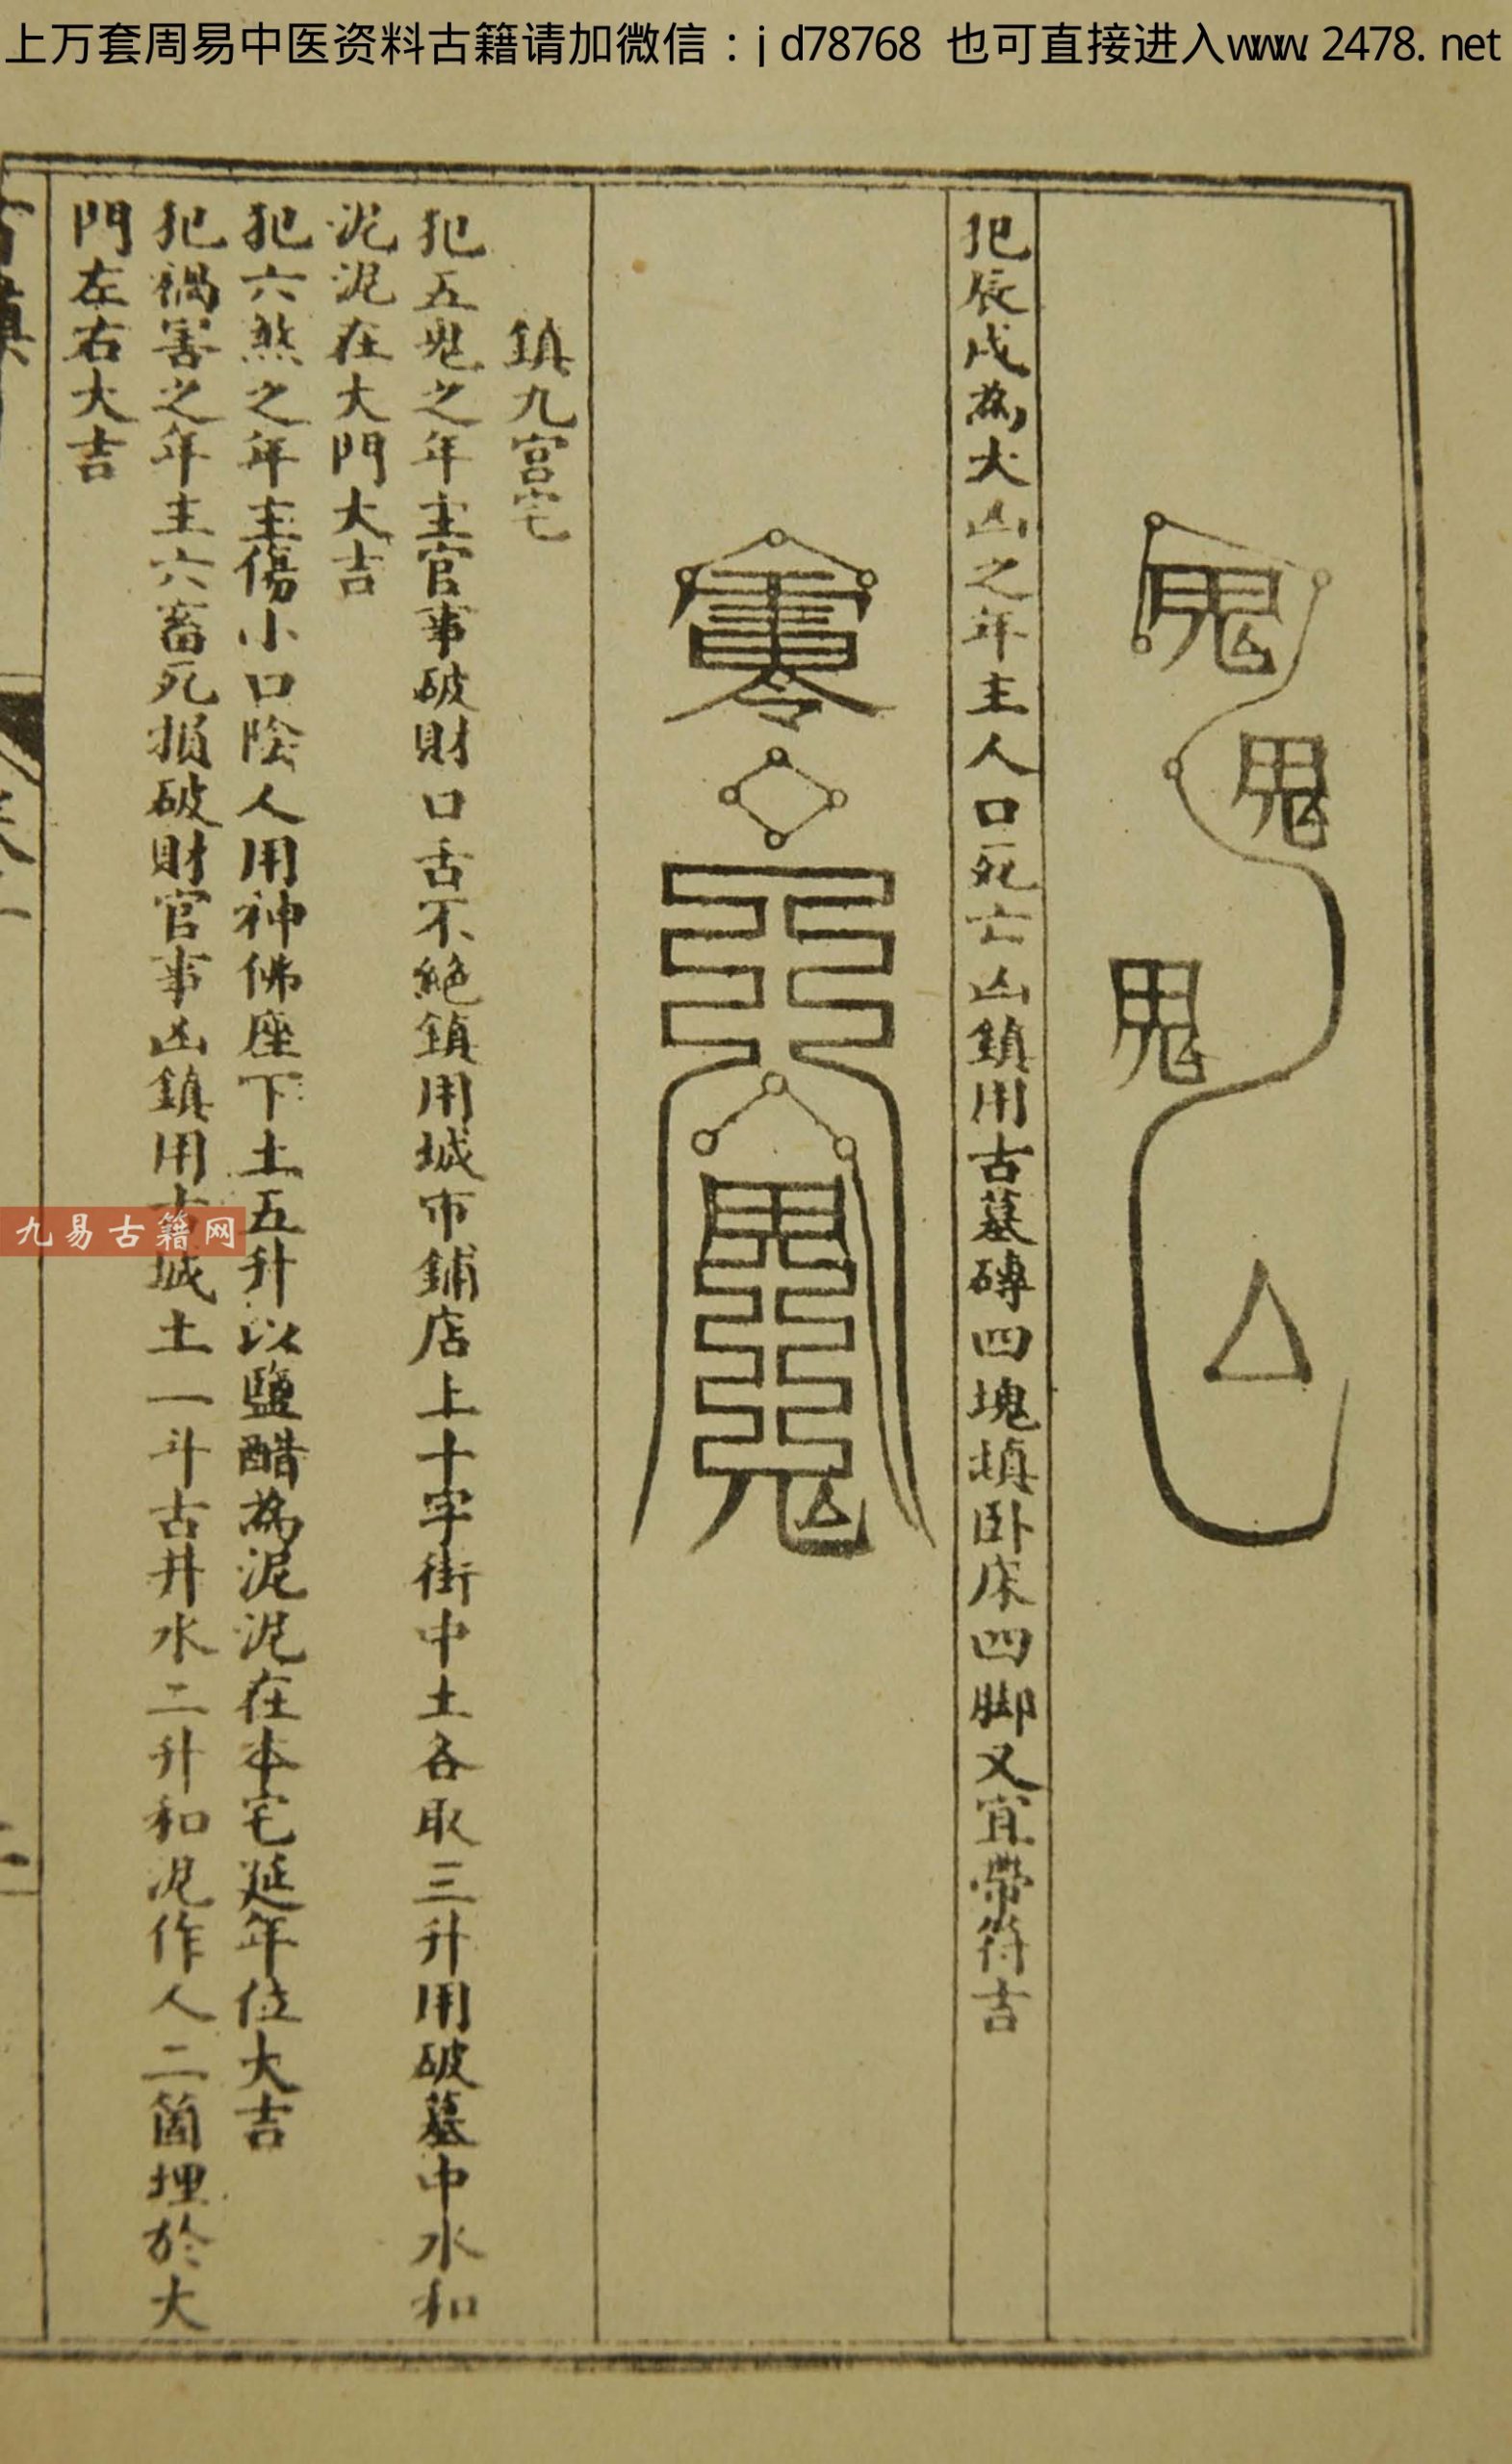 上万套周易中医资料古籍请加微信：jd78768 也可直接进入www.2478.net
鬼
鬼
鬼
犯辰戌為犬凶之年主人口死亡凶鎮用古墓磚四塊填卧床四脚又宜帶符吉
鎮九宮宅
犯五鬼之年主官事破財口舌不絕鎮用城市鋪店上十字街中土各取三升用破墓中水和
泥泥在大門大吉
犯六煞之年主傷小口陰人用神佛座下土五升以鹽醋為泥泥在本宅延年位大吉
犯禍害之年主六畜死損破財官事凶鎮用古城土一斗古井水二升和泥作人二箇埋於大
門左右大吉
九易古籍网